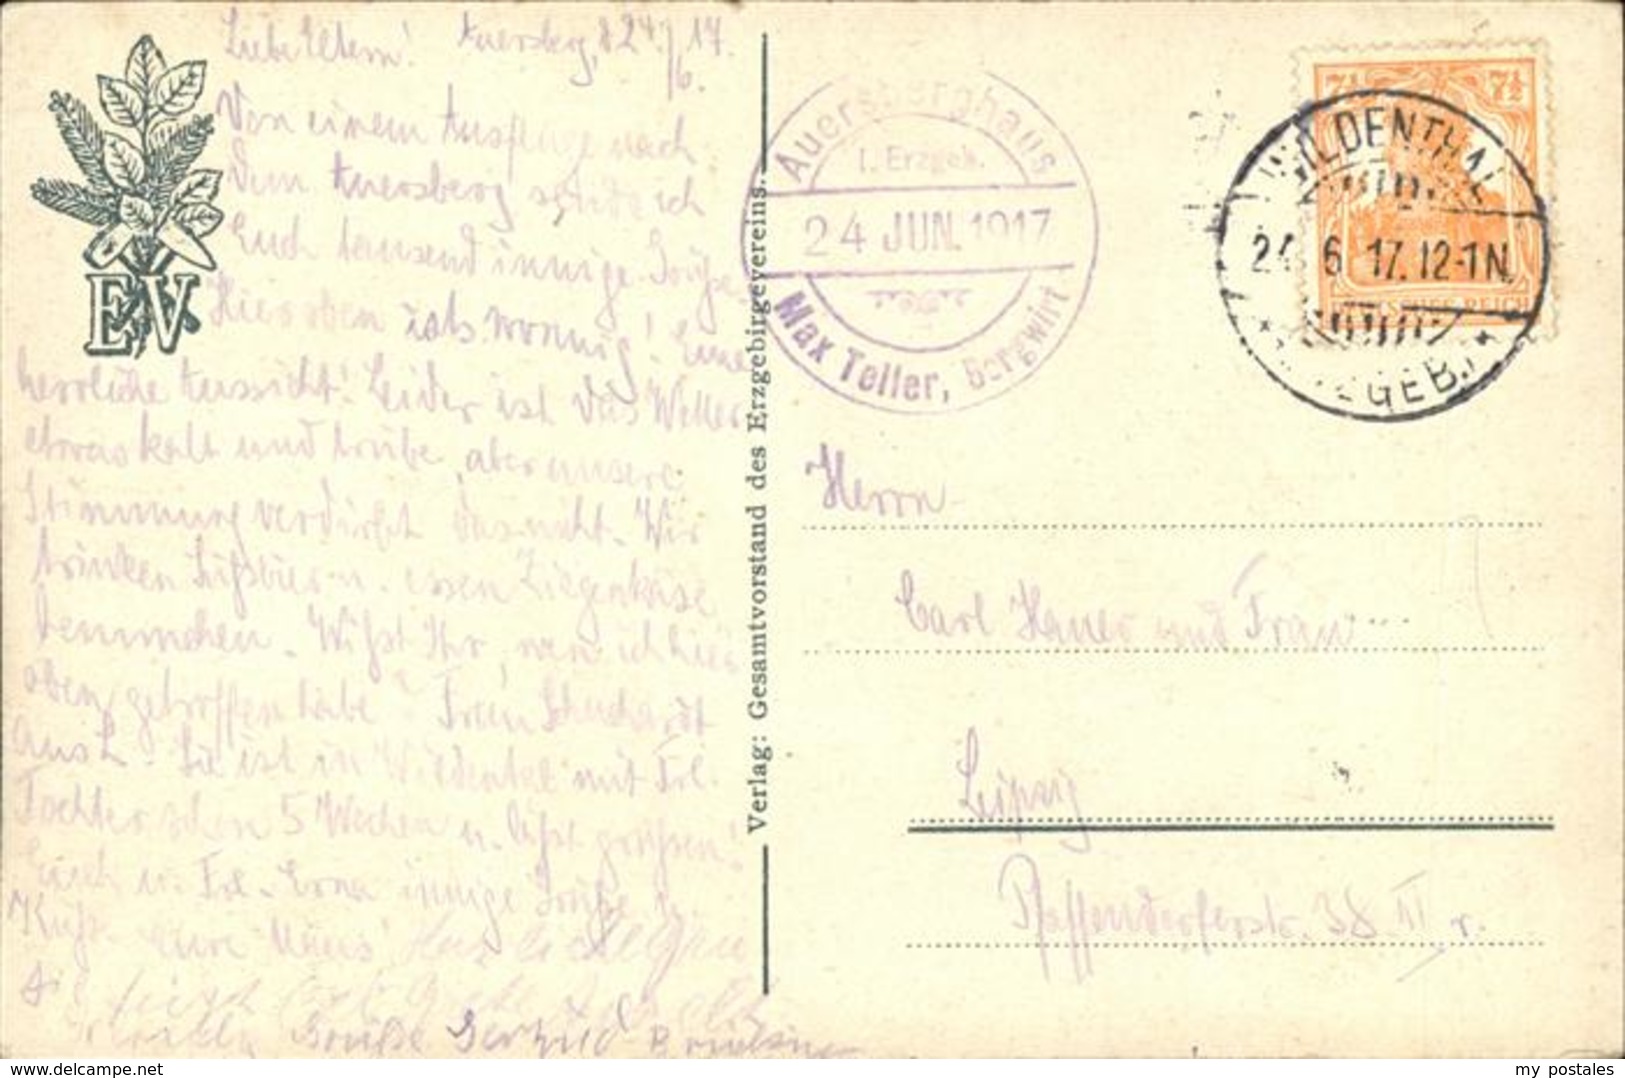 Liebe Eltern! Auersberg, d 24./6. 17.
Von einem Ausfluge nach
dem Auersberg sende ich
Euch tausend innige Grüße.
Hier oben ists wonnig! Eine
herrliche Aussicht! Leider ist das Wetter
etwas kalt und trübe, aber unsere
Stimmung verdirbt das nicht. Wir
trinken Süßbier u. essen Ziegenkäse
. Wißt Ihr, wen ich hier
oben getroffen habe? Frau Schuchardt
aus L. Sie ist in Wildental mit Frl.
Tochter schon 5 Wochen u. läßt grüßen!
Euch u. Frl. Erna innige Grüße u.
Kuß. Eure
Grüße Gertrud
EV
Verlag: Gesamtvorstand des Erzgebirgevereins.
Auersberghaus
I. Erzgeb.
24 JUN. 1917
Max Teller, Bergwirt
7½ 7½
WILDENTHAL
24 6 17. 12-1 N.
Herrn
Carl Hauer und Frau
Leipzig
Pfaffendorferstr. 38 III r.
my postales
delcampe.net